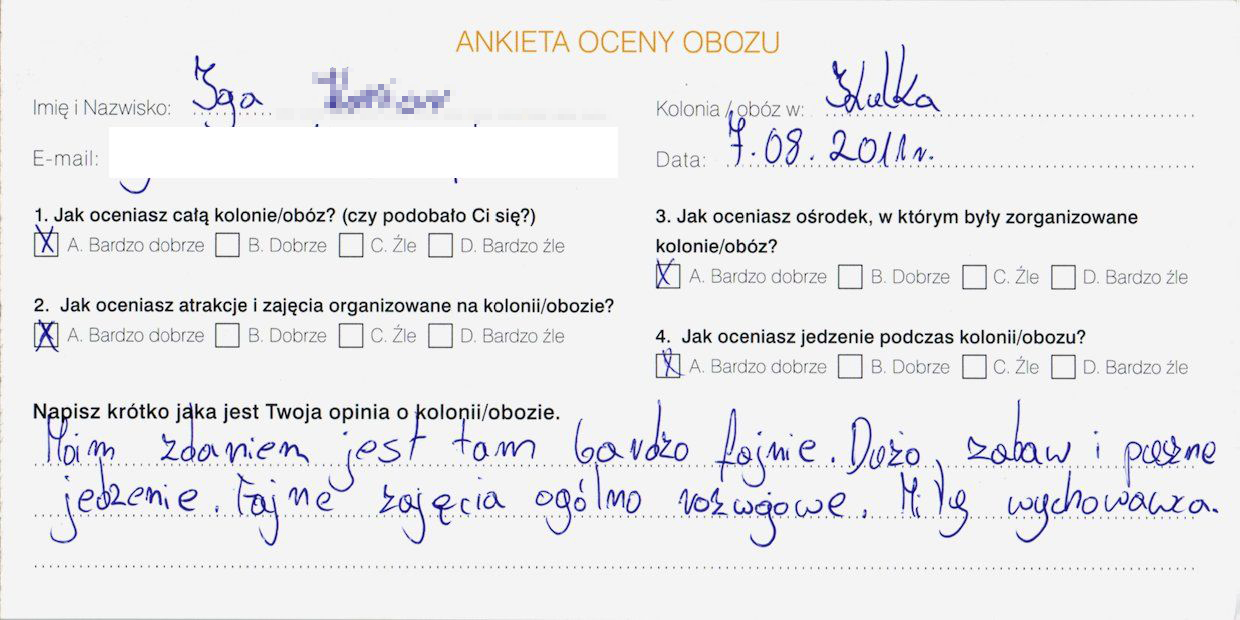 ANKIETA OCENY OBOZU
Imię i Nazwisko: Iga
Kolonia / obóz w: Kulka
E-mail:
Data: 7.08.2011r.
1. Jak oceniasz całą kolonie/obóz? (czy podobało Ci się?)
X A. Bardzo dobrze B. Dobrze C. Źle D. Bardzo źle
2. Jak oceniasz atrakcje i zajęcia organizowane na kolonii/obozie?
X A. Bardzo dobrze B. Dobrze C. Źle D. Bardzo źle
3. Jak oceniasz ośrodek, w którym były zorganizowane
kolonie/obóz?
X A. Bardzo dobrze B. Dobrze C. Źle D. Bardzo źle
4. Jak oceniasz jedzenie podczas kolonii/obozu?
X A. Bardzo dobrze B. Dobrze C. Źle D. Bardzo źle
Napisz krótko jaka jest Twoja opinia o kolonii/obozie.
Moim zdaniem jest tam bardzo fajnie. Dużo zabaw i pyszne
jedzenie. Fajne zajęcia ogólno rozwojowe. Miły wychowawca.